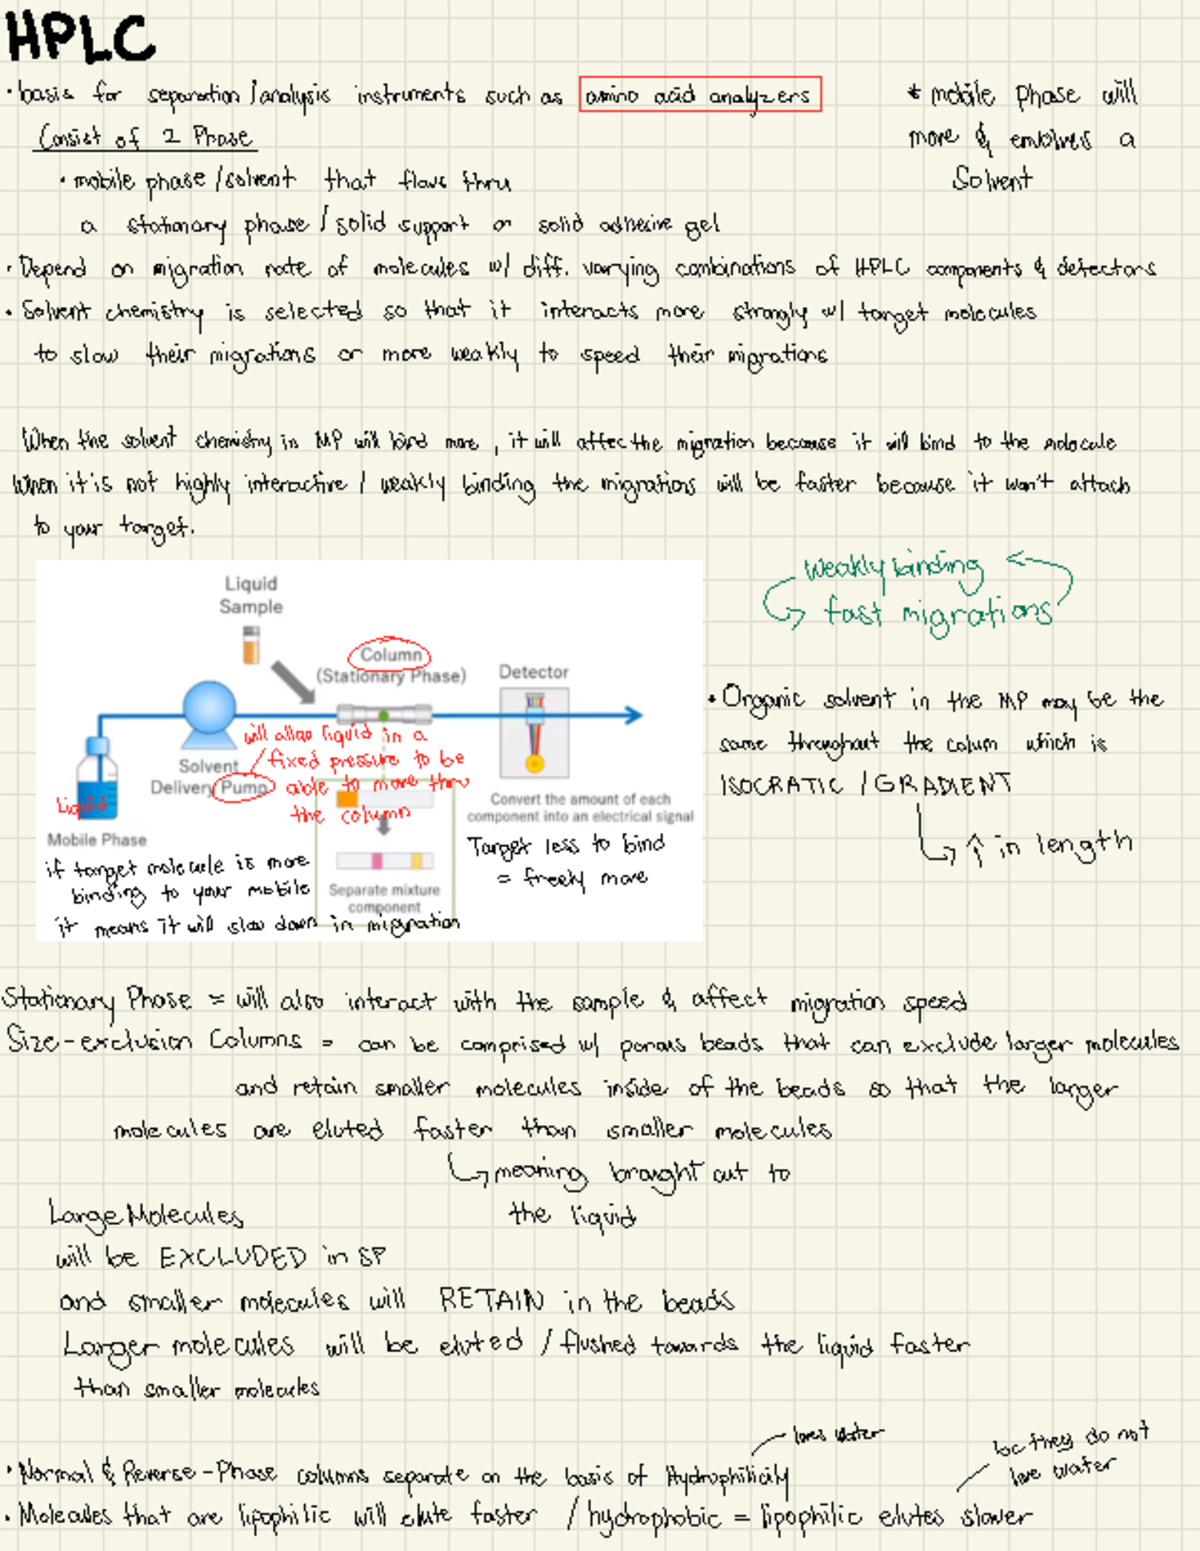 HPLC
• basis for separation/analysis instruments such as amino acid analyzers
Consist of 2 Phase
• mobile phase/solvent that flows thru
a stationary phase / solid support or solid adhesive gel
* mobile phase will
move & envolves a
Solvent
• Depend on migration rate of molecules w/ diff. varying combinations of HPLC components & detectors
• Solvent chemistry is selected so that it interacts more strongly w/ target molecules
to slow their migrations or more weakly to speed their migrations
When the solvent chemistry in MP will bind more, it will affect the migration because it will bind to the molecule
When it is not highly interactive / weakly binding the migrations will be faster because it won't attach
to your target.
Liquid
Sample
Column
(Stationary Phase)
Detector
Solvent
Delivery Pump
will allow liquid in a
fixed pressure to be
able to move thru
the column
Liquid
Mobile Phase
Convert the amount of each
component into an electrical signal
Separate mixture
component
if target molecule is more
binding to your mobile
it means it will slow down in migration
Target less to bind
= freely move
weakly binding
fast migrations
• Organic solvent in the MP may be the
same throughout the column which is
ISOCRATIC / GRADIENT
↑ in length
Stationary Phase = will also interact with the sample & affect migration speed
Size-exclusion Columns = can be comprised w/ porous beads that can exclude larger molecules
and retain smaller molecules inside of the beads so that the larger
molecules are eluted faster than smaller molecules
meaning brought out to
the liquid
Large Molecules
will be EXCLUDED in SP
and smaller molecules will RETAIN in the beads
Larger molecules will be eluted / flushed towards the liquid faster
than smaller molecules
loves water
bc they do not
love water
• Normal & Reverse-Phase columns separate on the basis of Hydrophilicity
• Molecules that are lipophilic will elute faster / hydrophobic = lipophilic elutes slower